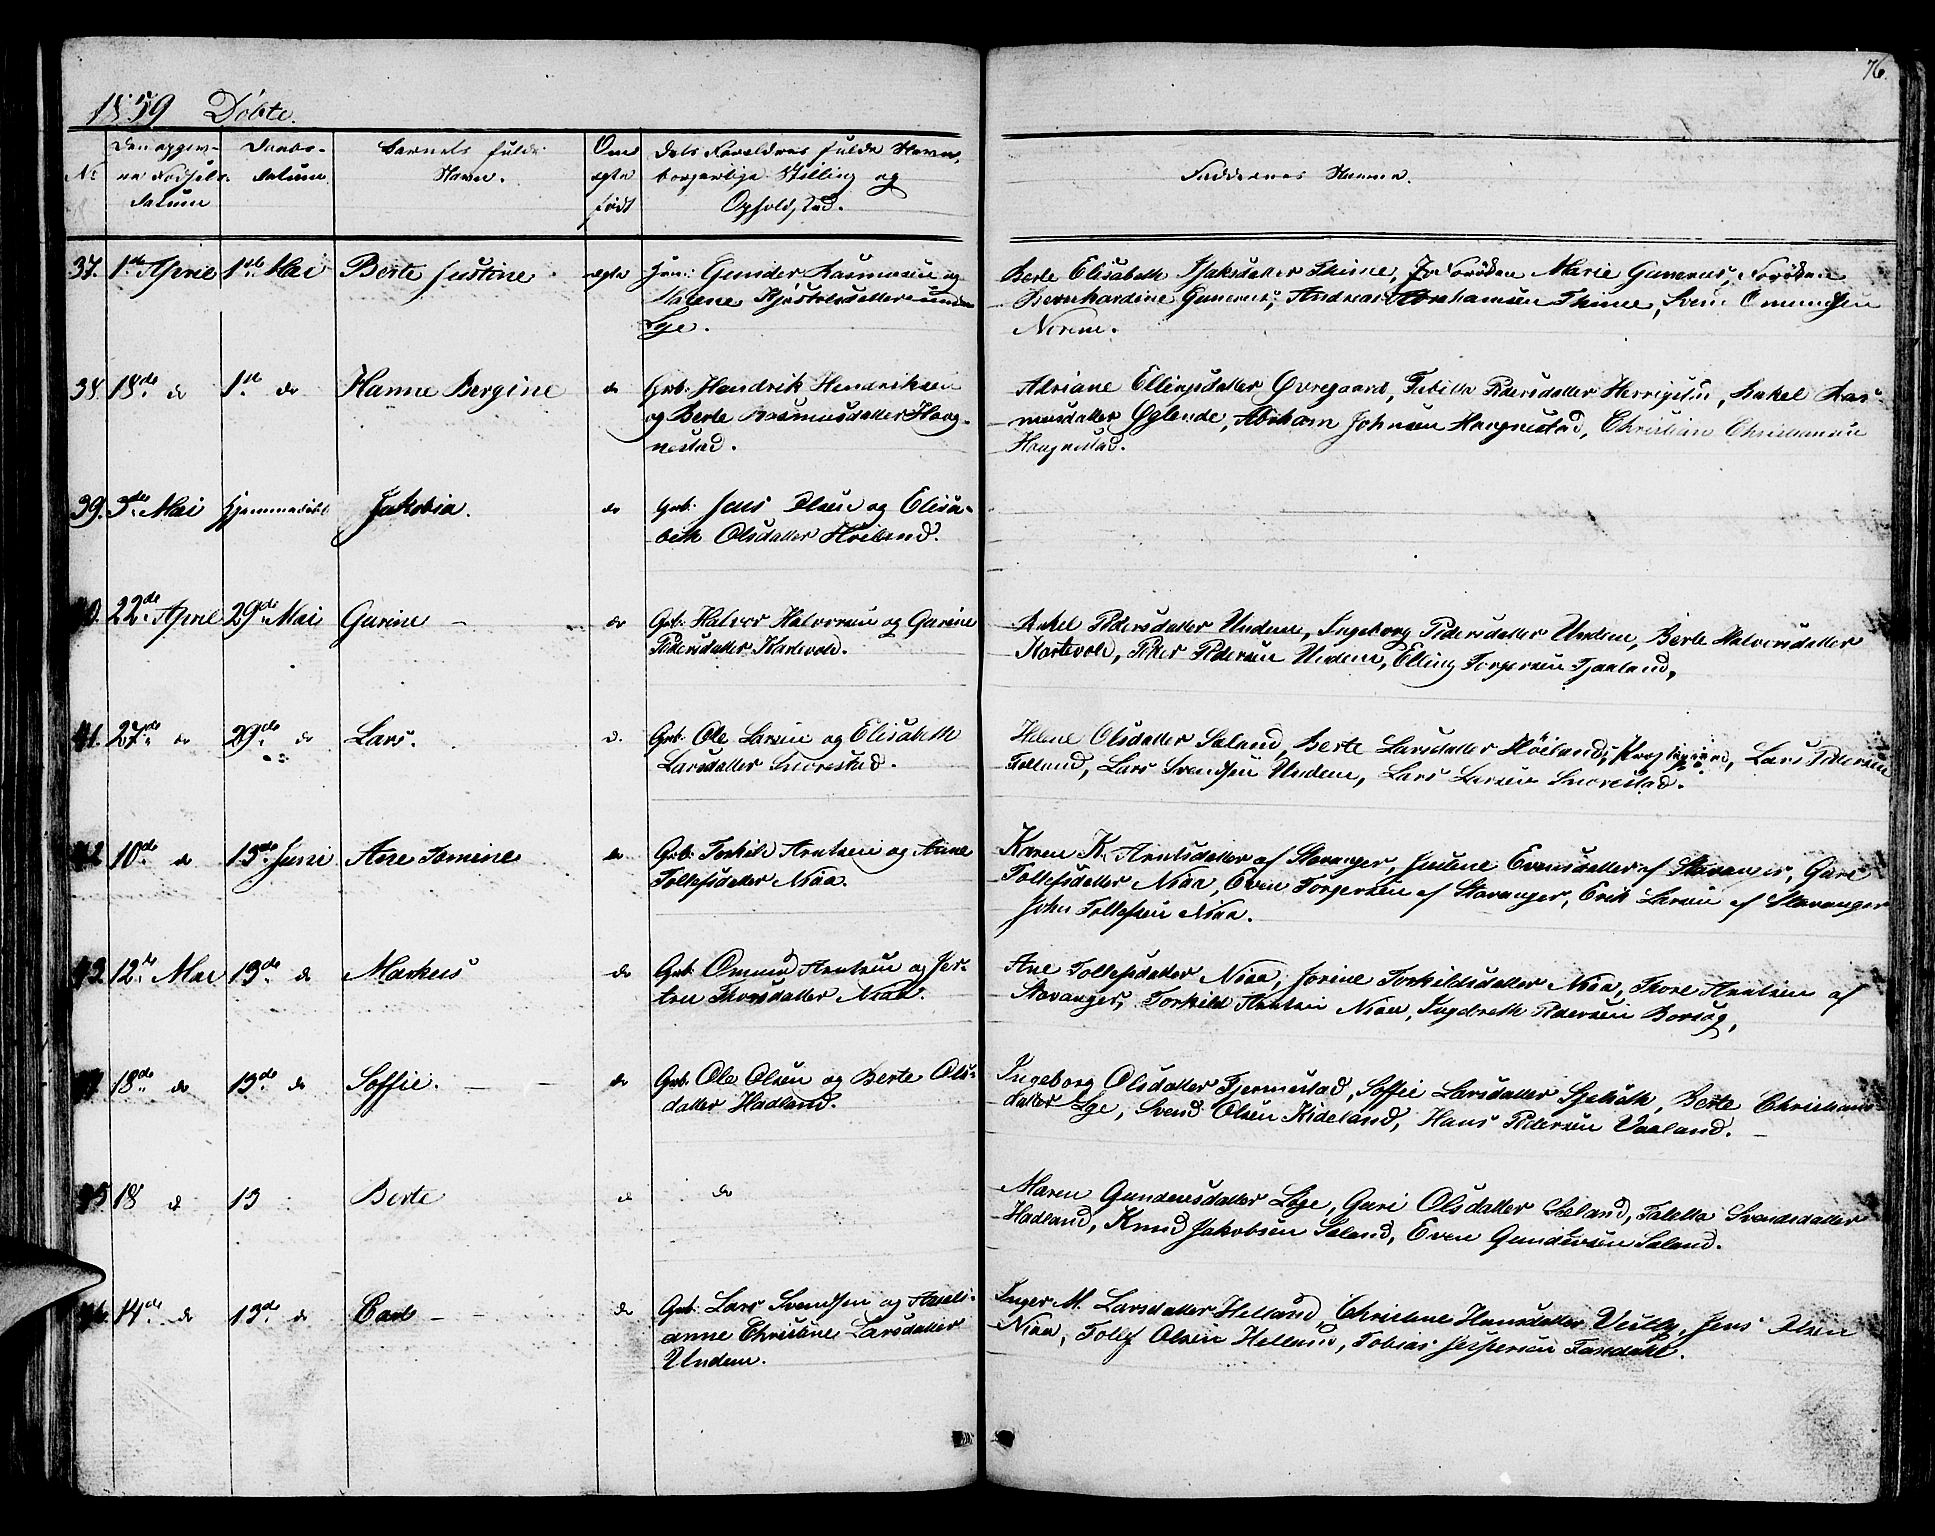 76.
1859 Döbte.
No
Den opgiv-
ne Födsels-
datum
Daabs-
datum.
Barnets fulde
Navn.
Om
ægte
født
Dets Forældres fulde Navn,
borgerlige Stilling og
Opholdsted.
Faddernes Navne.
37. 1ste April 1ste Mai Berte Justine ægte
Gunder Rasmusen og
Malene Kjøstolsdatter
Lye.
Berte Elisabeth Thime, Frøken Marie Gunerus, Frøken
Bernhardine Gunerus, Andreas Abrahamsen Thime, Svend Omundsen
Norem.
38. 18de do 1ste do Hanne Bergine do
Grb: Hendrik Hendriksen
og Berte Rasmusdatter Haag-
nestad.
Adriane Ellingsdatter Øvregaard, Tobitta Pedersdatter Herrigstad, Rakel Ras-
musdatter Øglende, Abraham Johnsen Haagnestad, Christian Christiansen
Haagnestad.
39. 3die Mai hjemmedöbt Jakobia. do
Grb: Jens Olsen og Elisa-
beth Olsdatter Höiland.
40. 22de April 29de Mai Gurine — do
Grb: Halvor Halvorsen og Gurine
Pedersdatter Kartevold.
Rakel Pedersdatter Undem, Ingeborg Pedersdatter Undem, Berte Halvorsdatter
Kartevold, Peder Pedersen Undem, Elling Torgersen Tjaaland,
41. 27de do 29de do Lars. d.
Grb: Ole Larsen og Elisabeth
Larsdatter Snorestad.
Helene Olsdatter Seland, Berte Larsdatter Höiland, Lars Pedersen
Tolland, Lars Svendsen Undem, Lars Larsen Snorestad.
42 10de do 13de Juni Ane Tomine do
Grb: Torkild Arntsen og Anne
Tollefsdatter Niaa.
Karen K. Arntsdatter af Stavanger, Juline Evensdatter af Stavanger, Guri
Tollefsdatter Niaa, Even Torgersen af Stavanger, Erik Larsen af Stavanger
John Tollefsen Niaa.
43. 12te Mai 13de do Markus do
Grb: Omund Arntsen og Jer-
tru Thorsdatter Niaa.
Ane Tollefsdatter Niaa, Jorine Torkildsdatter Niaa, Thore Arntsen af
Stavanger, Torkild Arntsen Niaa, Ingebreth Pedersen Borsög,
44 18de do 13de do Soffie. — — do
Grb. Ole Olsen og Berte Ols-
datter Hadland.
Ingeborg Olsdatter Fjermestad, Soffie Larsdatter Sjelvik, Berte Christians-
datter Lye, Svend Olsen Kideland, Hans Pedersen Vaaland. —
45 18 do 13 Berte d do
Maren Gundersdatter Lye, Guri Olsdatter Seland, Taletta Svendsdatter
Hadland, Knud Jakobsen Seland, Even Gundersen Seland.
46. 14de do 13de do Carl — — do
Grb: Lars Svendsen og Axeli-
anne Christine Larsdatter
Undem.
Inger M. Larsdatter Helland, Christene Hansdatter Veilby, Jens Olsen
Niaa, Tollef Olsen Helland, Tobias Jespersen Taxdahl.